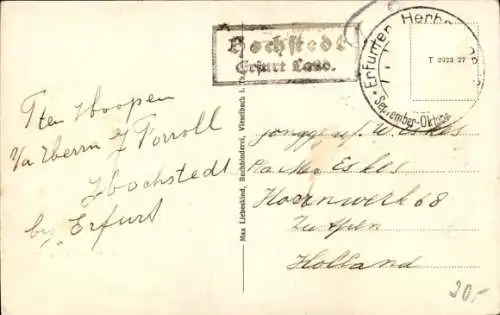 Hochstedt
Erfurt Land.
Erfurter Herbst
September-Oktober
T 2923 27
T ten Hoopen
p/a Herrn Torroll
Hochstedt
bij Erfurt
Max Liebeskind, Buchbinderei, Vieselbach i. Th.
jongejuf. W. Eskes
P/a Mr Eskes
Hoornwerk 68
Zutfen
Holland
30.-